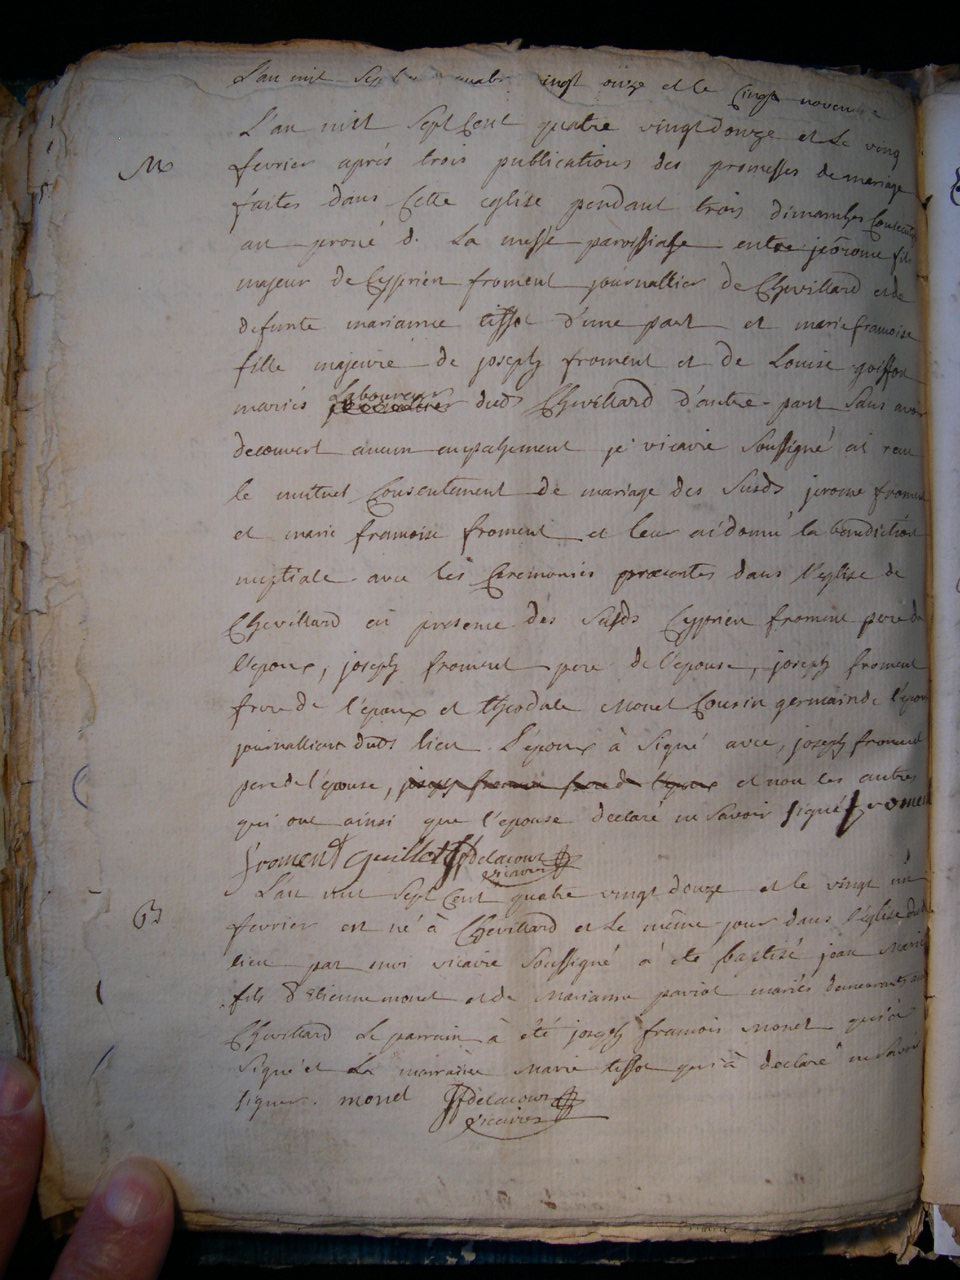 L'an mil sept quatre vingt onze et le cinq novembre
L'an mil sept Cent quatre vingt douze et le vingt
M fevrier aprés trois publications des promesses de mariage
faites dans Cette eglise pendant trois dimanches Consecutifs
au proné de La messe paroissiale entre jérome fils
majeur de Cyprien froment journallier de Chevillard et de
defunte marianne tissot d'une part et marie francoise
fille majeure de joseph froment et de Louise goiffon
mariés Laboureur dudt Chevillard d'autre part Sans avoir
decouvert aucun empechement je vicaire Soussigné ai recu
le mutuel Consentement de mariage des Susds jerome froment
et marie francoise froment et leur ai donné la benediction
nuptiale avec les Ceremonies prescrites dans l'eglise de
Chevillard en presence des Susds Cyprien froment pere de
l'epoux, joseph froment pere de l'epouse, joseph froment
frere de l'epoux et theodule Monet Cousin germain de l'epoux
journalliers duds lieu. L'époux à Signé avec joseph froment
pere de l'epouse, joseph froment frere de l'epoux et non les autres
qui ont ainsi que l'epouse declaré ne Savoir signé froment
froment guillot delacour
vicaire
L'an mil Sept Cent quatre vingt douze et le vingt un
B fevrier est né à Chevillard et Le même jour dans l'église dudt
lieu par moi vicaire Soussigné à été baptisé jean Marie
fils d'Etienne monet et de Marianne pariot mariés demeurants
Chevillard Le parrain à été joseph francois Monet qui à
Signé et La marraine Marie tissot qui à declaré ne Savoir
signer. monet delacour
vicaire